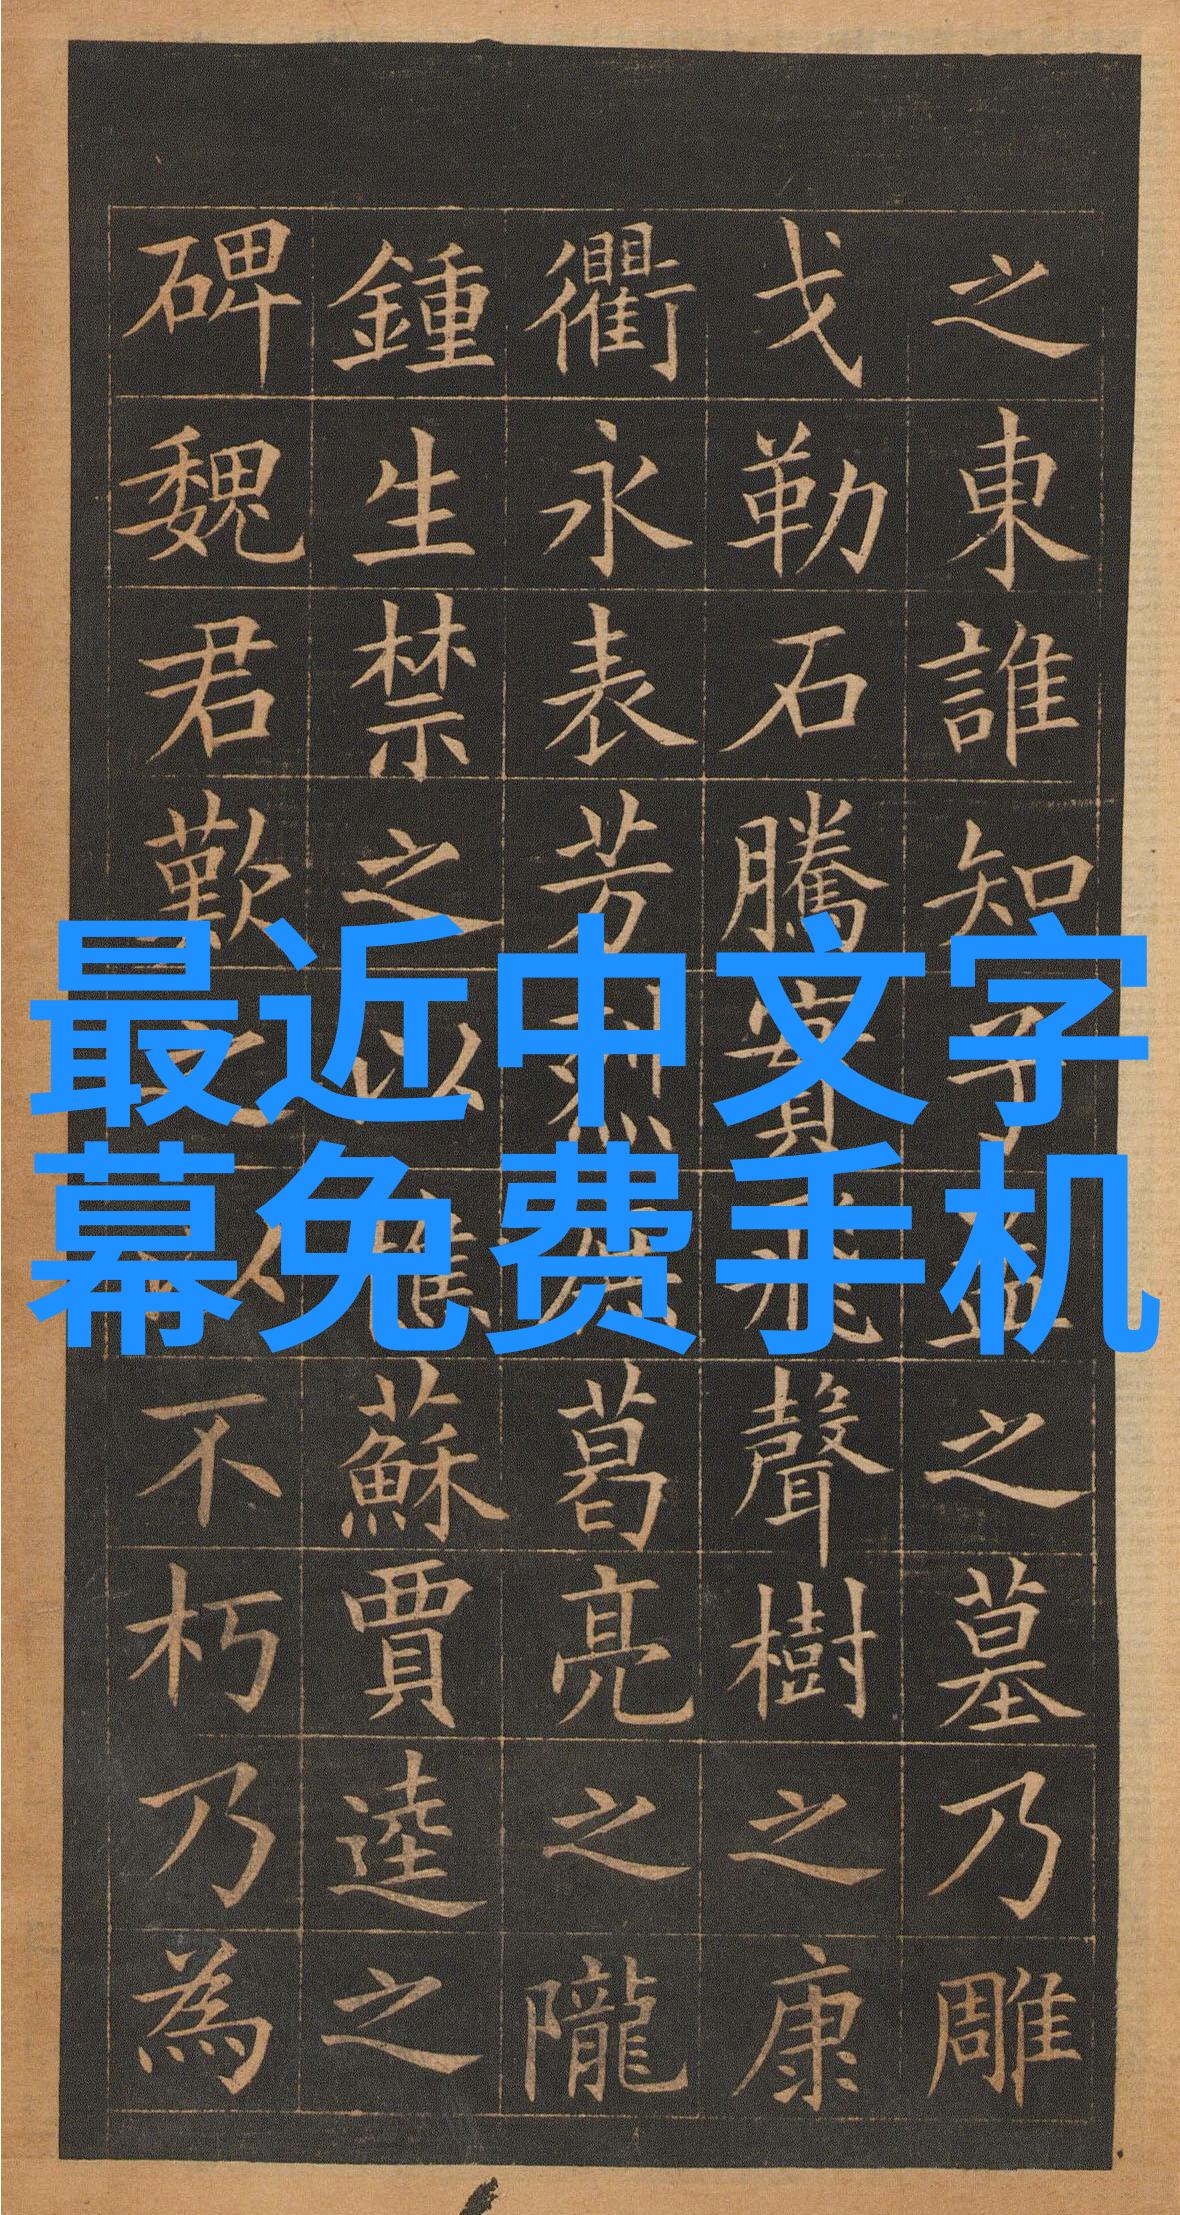 之東誰知子孟之墓乃雕
戈勒石騰實飛聲樹之康
衢永表芳烈諸葛亮之隴
鍾生禁之以樵蘇賈逵之
碑魏君歎之以不朽乃為
最近中文字
幕免费手机